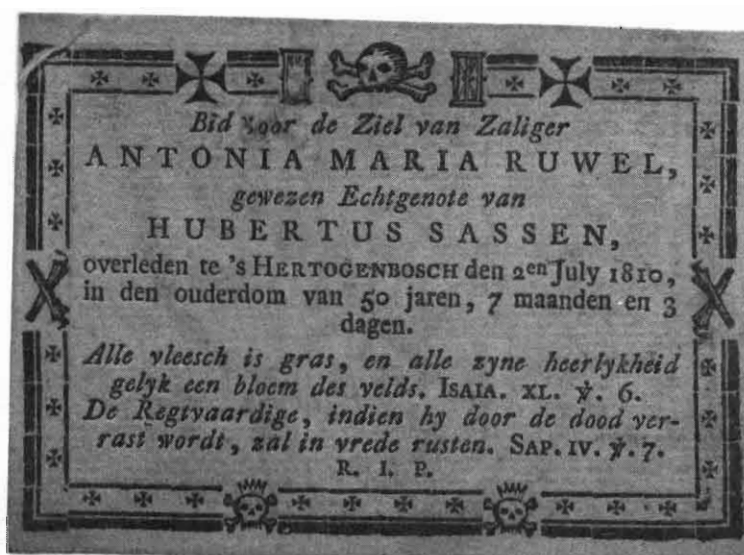 Bid voor de Ziel van Zaliger
ANTONIA MARIA RUWEL,
gewezen Echtgenote van
HUBERTUS SASSEN,
overleden te 's HERTOGENBOSCH den 2en July 1810,
in den ouderdom van 50 jaren, 7 maanden en 3
dagen.
Alle vleesch is gras, en alle zyne heerlykheid
gelyk een bloem des velds. ISAIA. XL. ℣. 6.
De Regtvaardige, indien hy door de dood ver-
rast wordt, zal in vrede rusten. SAP. IV. ℣. 7.
R. I. P.